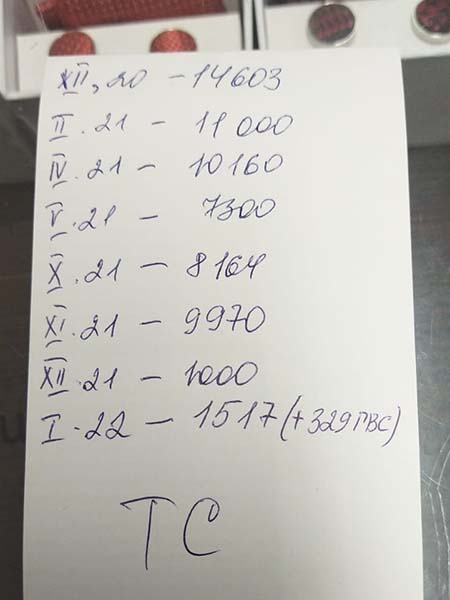 XII, 20 - 14603
II. 21 - 11000
IV. 21 - 10160
V. 21 - 7300
X. 21 - 8164
XI. 21 - 9970
XII. 21 - 1000
I. 22 - 1517 (+329 ПВС)
ТС